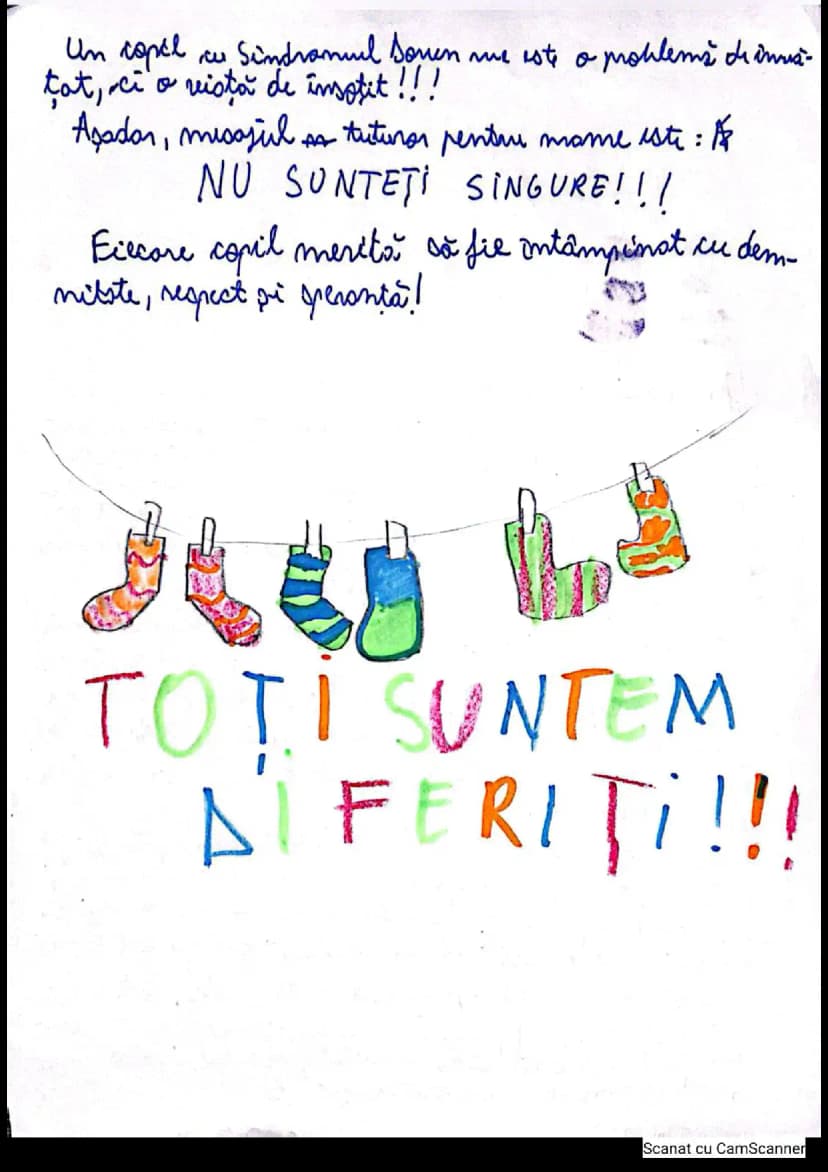 Un copil cu Sindromul Down nu este o problemă de învă-
țat, ci o viață de însoțit!!!
Așadar, mesajul tuturor pentru mame este:
NU SUNTEȚI SINGURE!!!
Fiecare copil merită să fie întâmpinat cu dem-
nitate, respect și speranță!
TOȚI SUNTEM
DIFERIȚI!!!
Scanat cu CamScanner